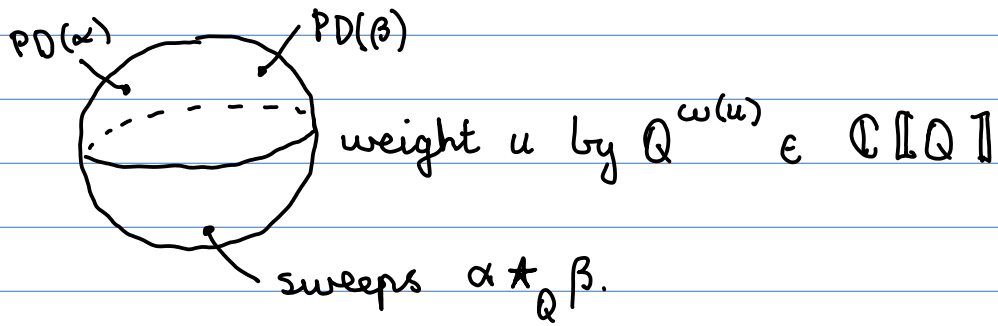 PD(α) PD(β)
weight u by Q^ω(u) ∈ ℂ⟦Q⟧
sweeps α ⋆_Q β.